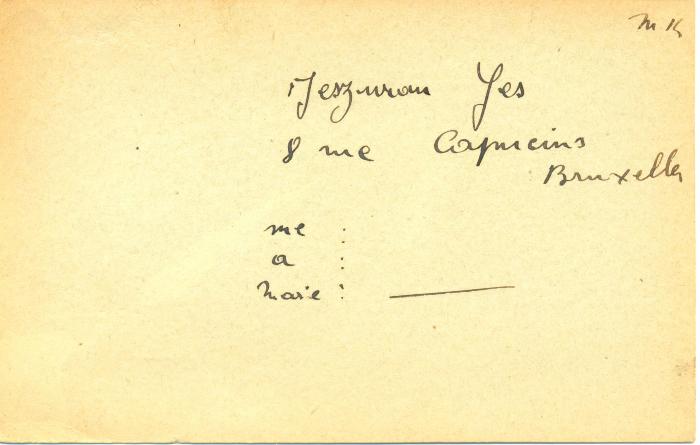 M K
Jeszuran Yes
8 rue Capucins
Bruxelles
née :
a :
Marié : ——